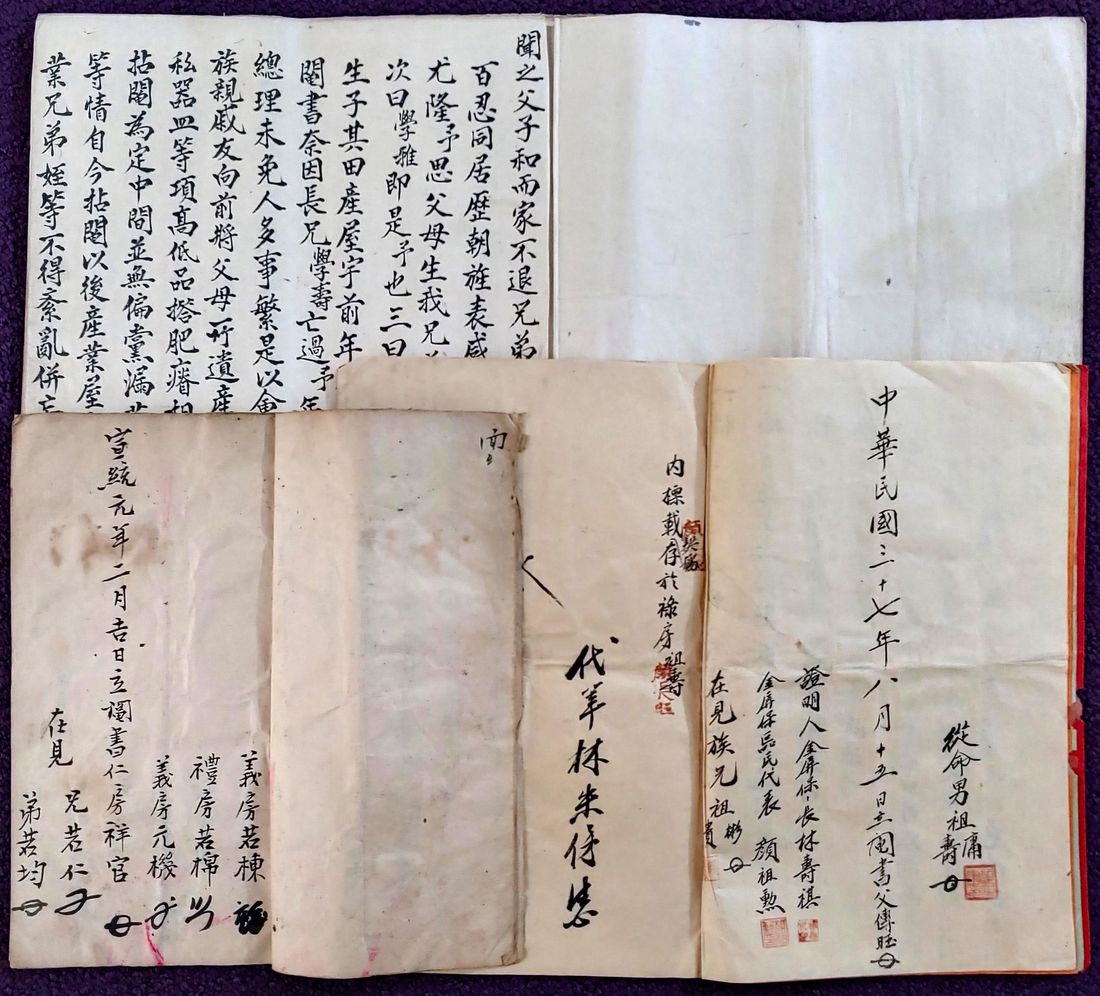 聞之父子和而家不退兄弟
百忍同居歷朝旌表咸
尤隆予思父母生我兄
次曰學雅即是予也三曰
生子其田產屋宇前年
鬮書奈因長兄學壽亡過予年
總理未免人多事繁是以會
族親戚友向前將父母所遺產
私器皿等項高低品搭肥瘠相
拈鬮為定中間並無偏黨漏
等情自今拈鬮以後產業屋
業兄弟姪等不得紊亂併忘
從命男祖庸
壽
中華民國三十七年八月十五日立鬮書父傳旺
證明人金屏保長林壽祺
金屏保區民代表 顏祖勲
在見族兄祖彬
貴
內標載存於祿房祖壽
代筆林
義房若棟
禮房若棉
義房元機
宣統元年二月吉日立鬮書仁房祥官
在見 兄若仁
弟若均